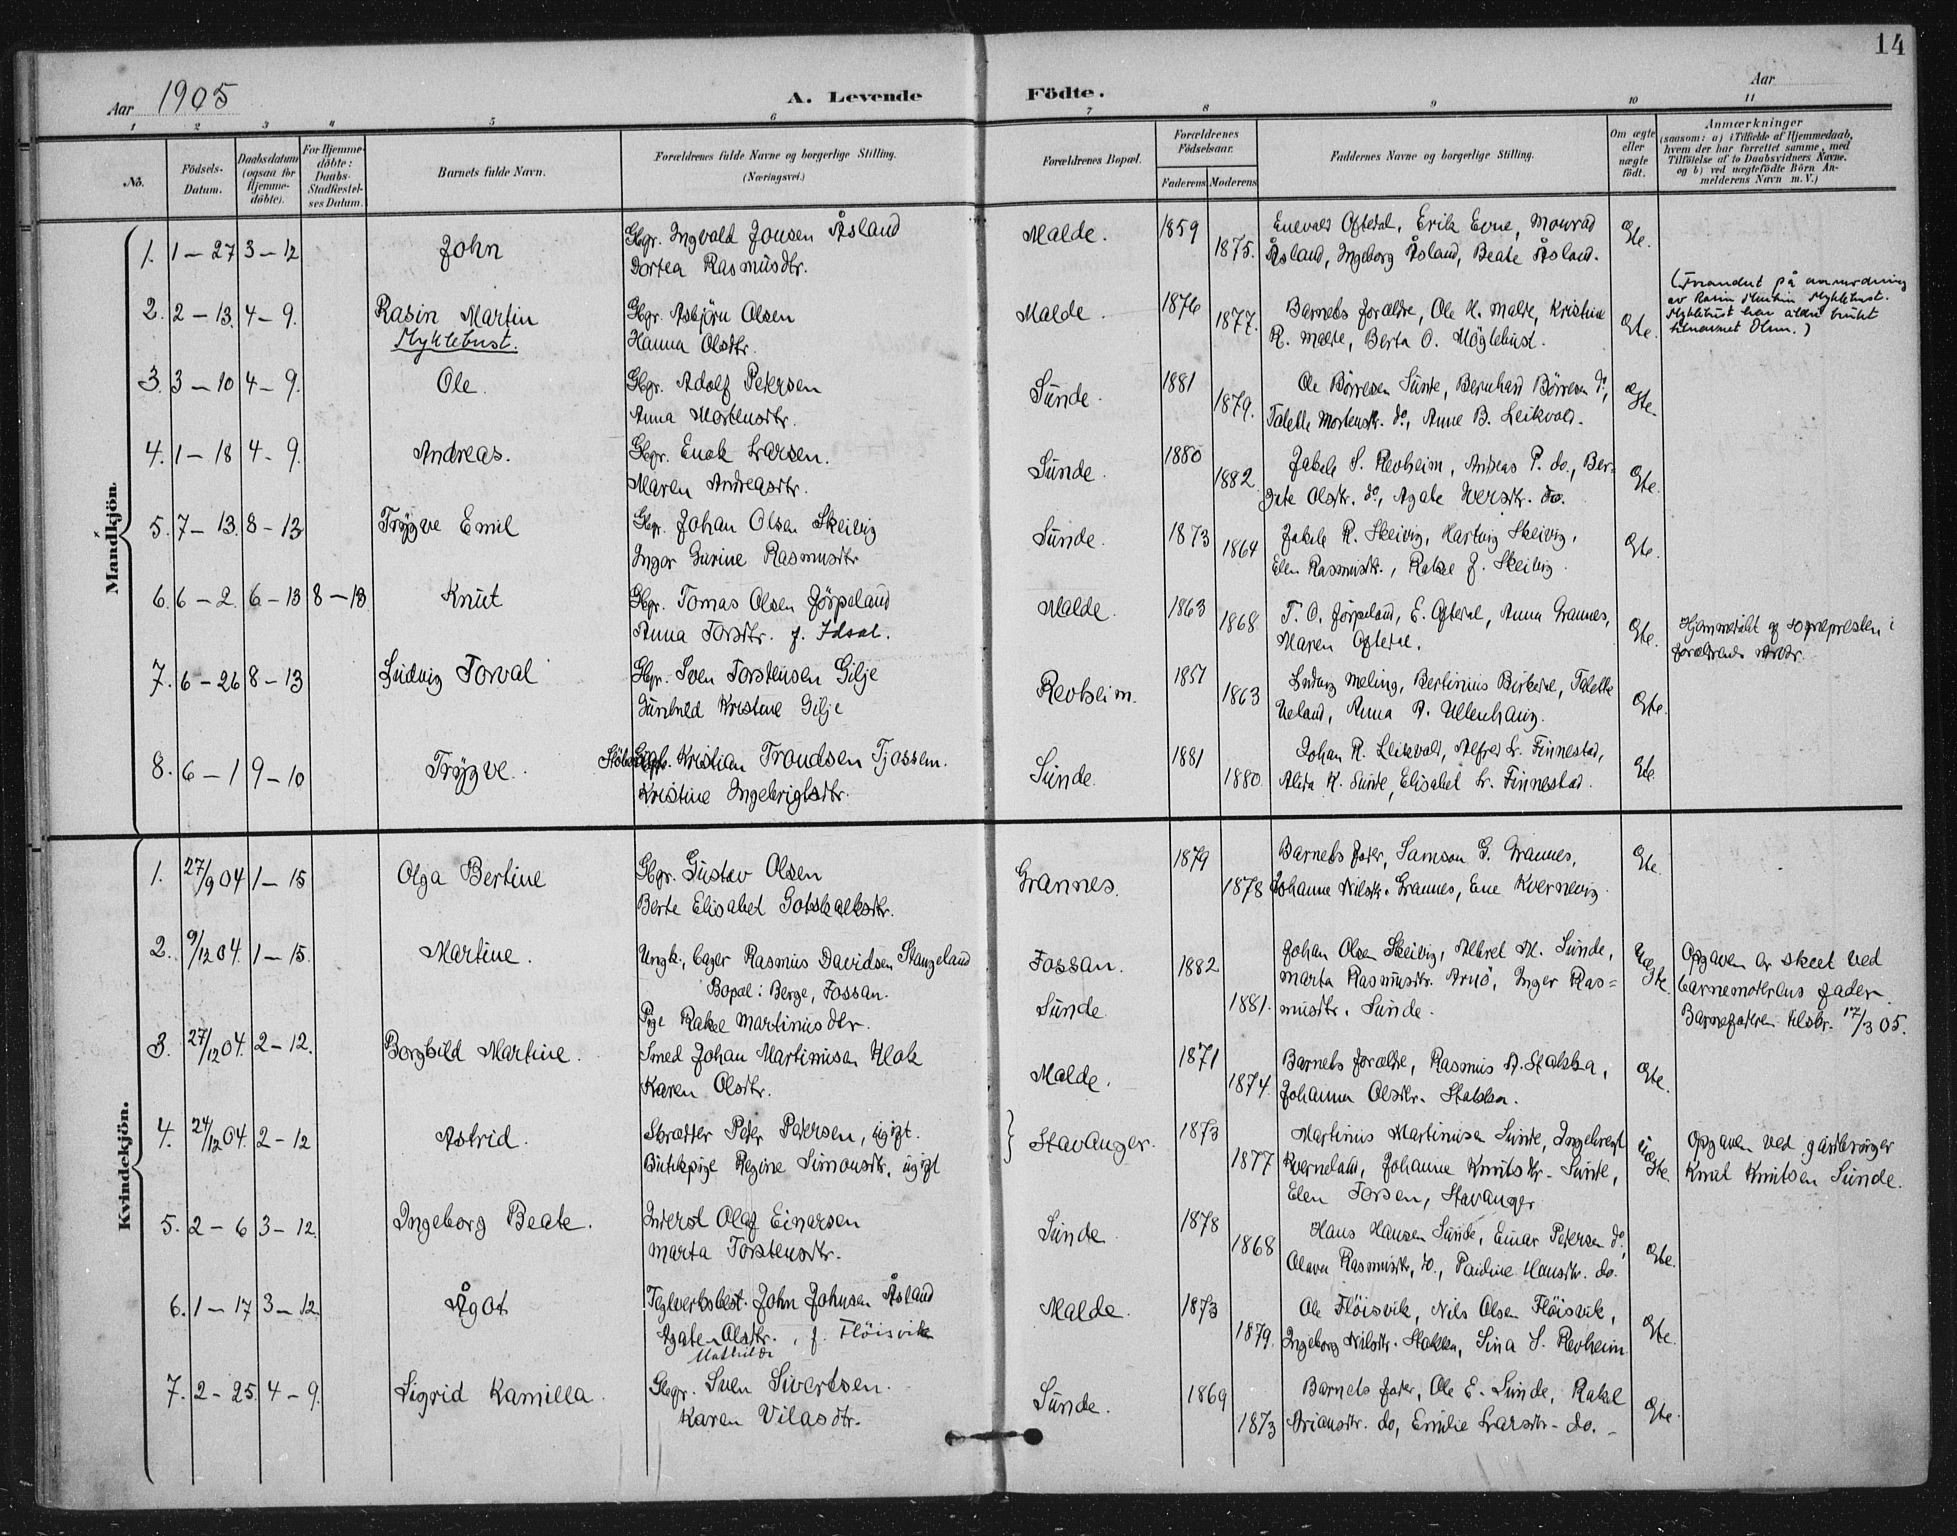 14
Aar 1905 A. Levende Födte. Aar
1 2 3 4 5 6 7 8 9 10 11
No.
Födsels-
Datum.
Daabsdatum
(ogsaa for
Hjemme-
döbte).
For Hjemme-
döbte:
Daabs-
Stadfæstel-
ses Datum.
Barnets fulde Navn.
Forældrenes fulde Navne og borgerlige Stilling.
(Næringsvei.)
Forældrenes Bopæl.
Forældrenes
Födselsaar.
Faderens Moderens
Faddernes Navne og borgerlige Stilling.
Om ægte
eller
uægte
födt.
Anmærkninger
(saasom: a) i Tilfælde af Hjemmedaab,
hvem der har forrettet samme, med
Tilföielse af to Daabsvidners Navne.
og b) ved uægtefödte Börn An-
melderens Navn m. V.)
Mandkjön.
1. 1-27 3-12 John Gbgr. Ingvald Jonsen Åsland Malde. 1859 Enevald Oftedal, Erik Evne, Monrad Egte.
Dortea Rasmusdtr. 1875. Åsland, Ingeborg Åsland, Beate Åsland.
2. 2-13. 4-9. Rasin Martin Gbgr. Asbjörn Olsen Malde. 1876 Barnets forældre, Ole H. Malde, Kristine Egte.
Myklebust. Hanna Olsdtr. 1877. R. Malde, Berta O. Möglebust.
(Forandret på anmodning
av Rasin Martin Myklebust.
Myklebust har aldri brukt
tilnavnet Olsen.)
3. 3-10 4-9. Ole. Gbgr. Adolf Petersen Sunde. 1881 Ole Börresen Sunde, Bernhard Börresen do, Egte.
Anna Mortensdtr. 1879. Talette Mortensdtr. do., Anne B. Leikvold.
4. 1-18 4-9. Andreas. Gbgr. Enok Larsen. Sunde. 1880 Jakob S. Revheim, Andreas P. do., Ber- Egte.
Maren Andreasdtr. 1882. Olsdtr. do, Agate do.
5. 7-13. 8-13 Trygve Emil Gbgr. Johan Olsen Skeivig Sunde. 1873 Jakob R. Skeivig, Hartvig Skeivig, Egte.
Inger Gurine Rasmusdtr 1864 Elen Rasmusdtr., Rakel J. Skeivig.
6. 6-2. 6-13 8-13 Knut Gbgr. Tomas Olsen Jörpeland Malde. 1863 T. O. Jörpeland, E. Oftedal, Anna Grannes, Egte.
Anna Torsdtr. f. Idsal. 1868. Maren Oftedal.
Hjemmedöbt af sognepresten i
forældrenes
7. 6-26 8-13 Ludvig Torval Gbgr. Sven Torstensen Gilje Revheim. 1857 Ludvig Meling, Bertinius Birkedal, Talette Egte.
Gunhild Kristine Gilje 1863 Ueland, Anna A. Ullenhaug.
8. 6-1 9-10 Trygve. Kristian Trondsen Tjossem. Sunde. 1881 Johan R. Leikvold, Alfred L. Finnestad, Egte.
Kristine Ingebrigtsdtr. 1880. Alida K. Sunde, Elisabet L. Finnestad.
Kvindekjön.
1. 27/9 04 1-15 Olga Bertine Gbgr. Gustav Olsen Grannes. 1879 Barnets fader, Samson G. Grannes, Egte.
Berte Elisabet Gotskalksdtr. 1878 Johanne Nilsdtr. Grannes, Ene Kvernevig.
2. 9/12 04. 1-15. Martine. Ungk., bager Rasmus Davidsen Stangeland Fossan. 1882 Johan Olsen Skeivig, Albret M. Sunde, Uægte.
Bopæl: Berge, Fossan. Marta Rasmusdtr. Arnö, Inger Ras=
Pige Rakel Martinusdtr. Sunde. 1881. musdtr. Sunde.
Opgaven er skeet ved
barnemoderens fader.
Barnefaderen tilskr. 17/3 05.
3. 27/12 04. 2-12. Borghild Martine. Smed Johan Martinusen Malde. 1871 Barnets forældre, Rasmus A. Stokka, Egte.
Karen Olsdtr. 1874. Johanna Olsdtr. Stokka.
4. 24/12 04. 2-12 Astrid. Skrædder Peder Petersen, ugift. Stavanger. 1873 Martinus Martinusen Sunde, Ingebregt uægte.
Butikpige Regine Simonsdtr., ugift 1877 Kverneland, Johanne Knutsdtr. Sunde,
Elen Torsen, Stavanger
Opgaven ved gårdbruger
Knut Knutsen Sunde.
5. 2-6 3-12. Ingeborg Beate. Inderst Olaf Einarsen Sunde 1878 Hans Hansen Sunde, Einar Petersen do, Egte.
Marta Torstensdtr. 1868 Olava Rasmusdtr. do., Pauline Hansdtr. do.
6. 1-17 3-12. Ågot Teglverksbest. John Johnsen Åsland Malde. 1873 Ole Flöisvik, Nils Olsen Flöisvik, Egte.
Agate Mathilde Olsdtr., f. Flöisvik 1879. Ingeborg Nilsdtr. Stokka, Sina S. Revheim
7. 2-25. 4-9. Sigrid Kamilla. Gbgr. Sven Sivertsen. Sunde. 1869 Barnets fader, Ole E. Sunde, Rakel Egte.
Karen Vilasdtr. 1873 Ariansdtr. do, Emilie Larsdtr. do.